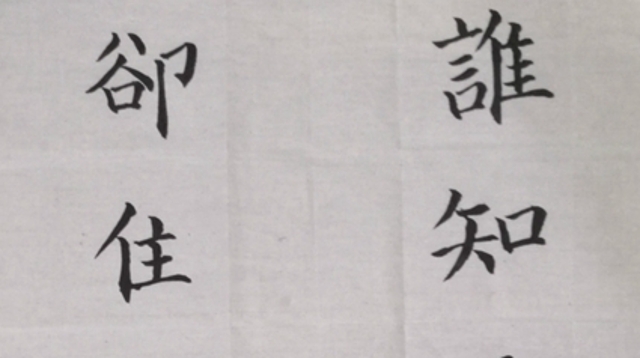 誰知
卻住